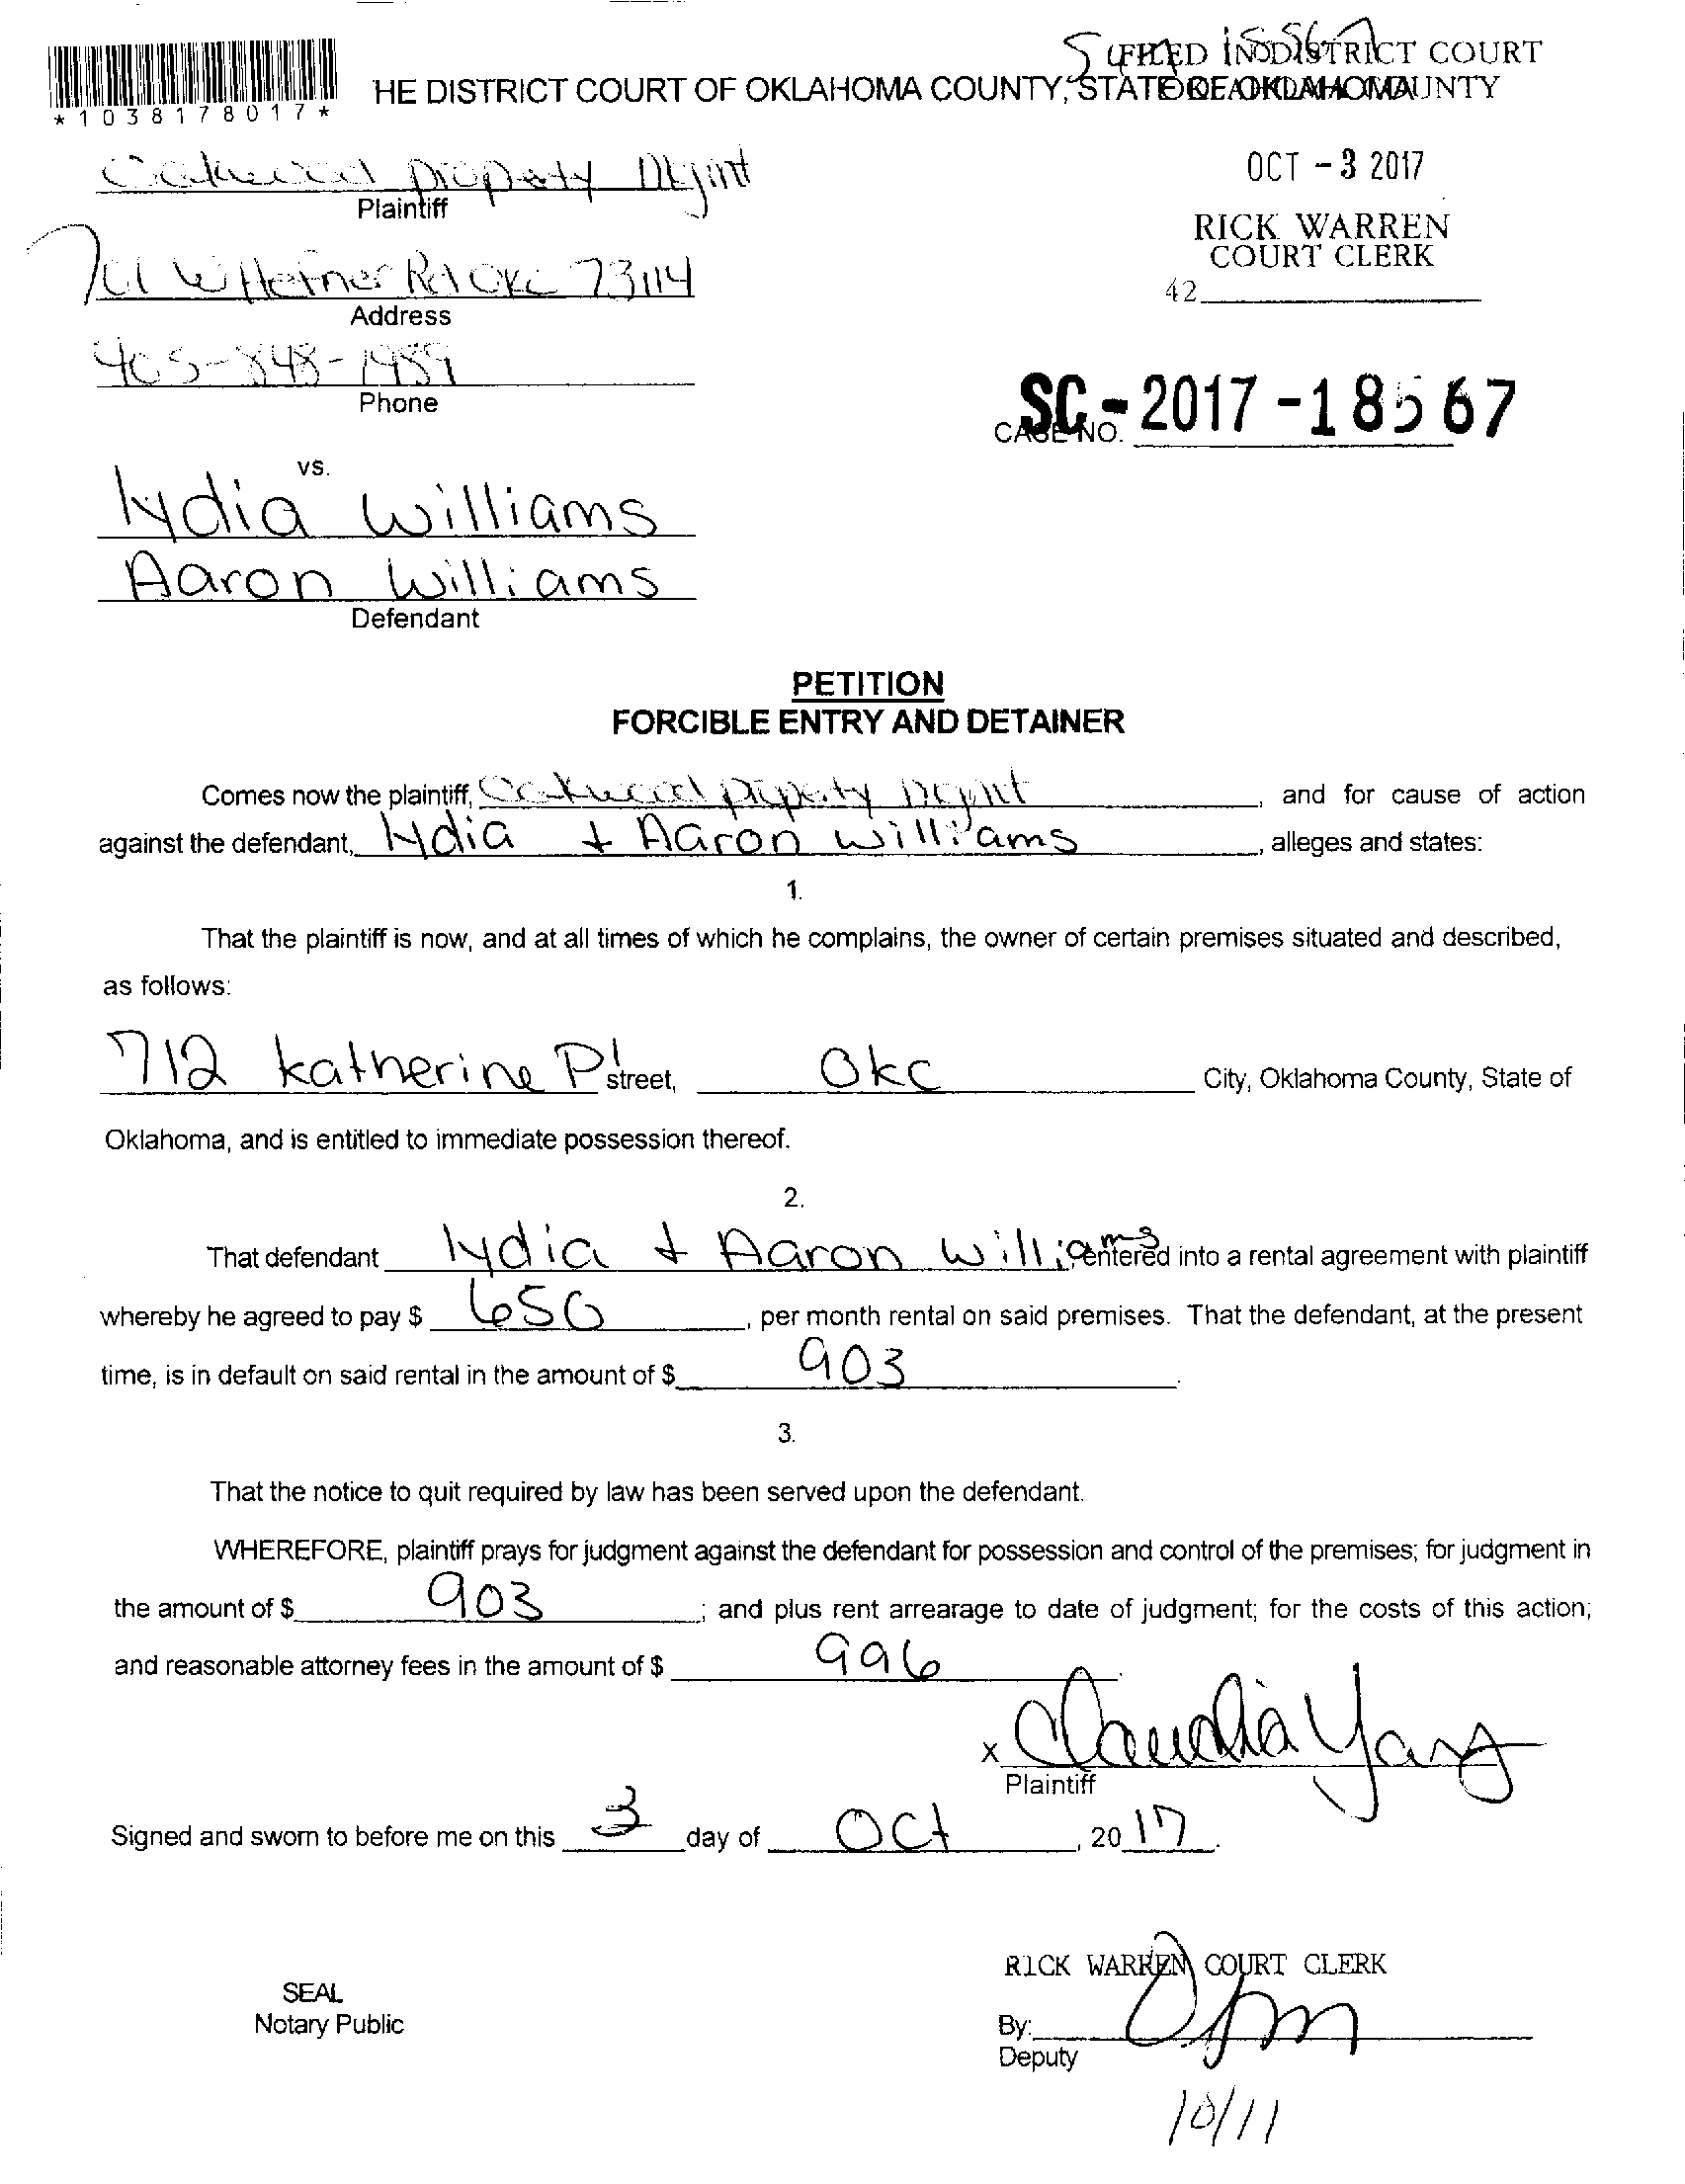 FILED IN DISTRICT COURT
HE DISTRICT COURT OF OKLAHOMA COUNTY, STATE OF OKLAHOMA
OKLAHOMA COUNTY
*1038178017*
OCT -3 2017
RICK WARREN
COURT CLERK
42
Oakwood property Mgmt
Plaintiff
701 W Hefner Rd OKC 73114
Address
405-848-1489
Phone
SC-2017-18567
CASE NO.
vs.
lydia williams
Aaron Williams
Defendant
PETITION
FORCIBLE ENTRY AND DETAINER
Comes now the plaintiff, Oakwood property mgmt, and for cause of action
against the defendant, lydia + Aaron williams, alleges and states:
1.
That the plaintiff is now, and at all times of which he complains, the owner of certain premises situated and described,
as follows:
712 katherine Pl street, Okc City, Oklahoma County, State of
Oklahoma, and is entitled to immediate possession thereof.
2.
That defendant lydia + Aaron williams entered into a rental agreement with plaintiff
whereby he agreed to pay $ 650, per month rental on said premises. That the defendant, at the present
time, is in default on said rental in the amount of $ 903.
3.
That the notice to quit required by law has been served upon the defendant.
WHEREFORE, plaintiff prays for judgment against the defendant for possession and control of the premises; for judgment in
the amount of $ 903; and plus rent arrearage to date of judgment; for the costs of this action;
and reasonable attorney fees in the amount of $ 996.
x Claudia Yang
Plaintiff
Signed and sworn to before me on this 3 day of Oct, 2017.
RICK WARREN COURT CLERK
SEAL
Notary Public
By:
Deputy
10/11